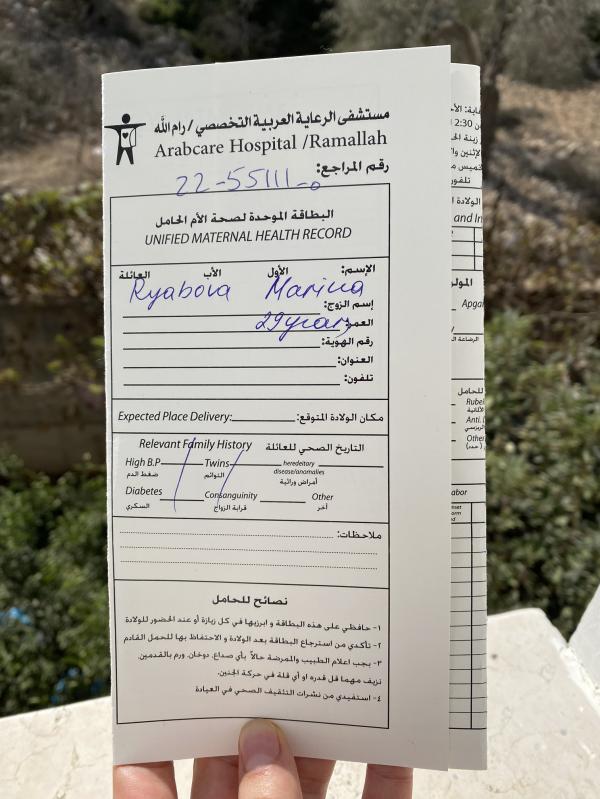 مستشفى الرعاية العربية التخصصي / رام الله
Arabcare Hospital /Ramallah
رقم المراجع:
22-55111-0
البطاقة الموحدة لصحة الأم الحامل
UNIFIED MATERNAL HEALTH RECORD
الإسم: الأول الأب العائلة
Ryabova Marina
إسم الزوج:
العمر: 29 years
رقم الهوية:
العنوان:
تلفون:
Expected Place Delivery: مكان الولادة المتوقع:
Relevant Family History التاريخ الصحي للعائلة
High B.P Twins hereditary
ضغط الدم التوائم disease/anomalies
أمراض وراثية
Diabetes Consanguinity Other
السكري قرابة الزواج آخر
ملاحظات:
نصائح للحامل
١- حافظي على هذه البطاقة و ابرزيها في كل زيارة أو عند الحضور للولادة
٢- تأكدي من استرجاع البطاقة بعد الولادة و الاحتفاظ بها للحمل القادم
٣- يجب اعلام الطبيب والممرضة حالاً بأي صداع, دوخان, ورم بالقدمين,
نزيف مهما قل قدره او أي قلة في حركة الجنين.
٤- استفيدي من نشرات التثقيف الصحي في العيادة
2:30
تلفون
الولادة
and In
المولو
Apga
للحامل
Rubel
Anti.
Other
abor